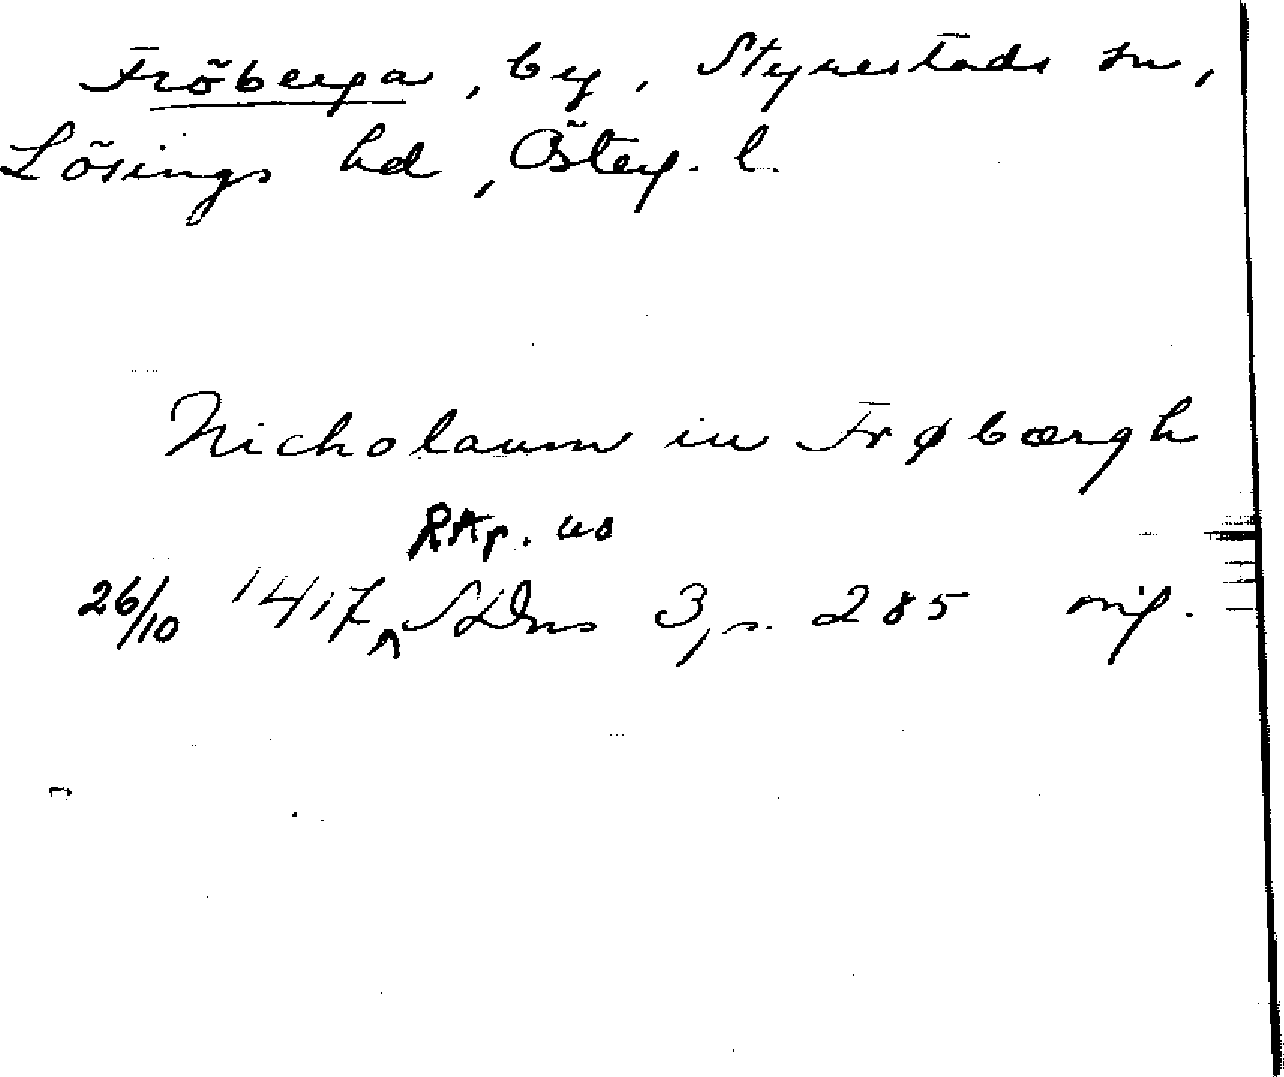 Fröberga, by, Styrestads sn,
Lösings hd, Österg. l.
Nicholaum in Frøbærgh
RAp. or
26/10 1417 ^ SDns 3, s. 285 orig.